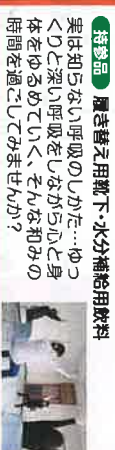 持参品 履き替え用靴下・水分補給用飲料
実は知らない呼吸のしかた…ゆっ
くりと深い呼吸をしながら心と身
体をゆるめていく、そんな和みの
時間を過ごしてみませんか？